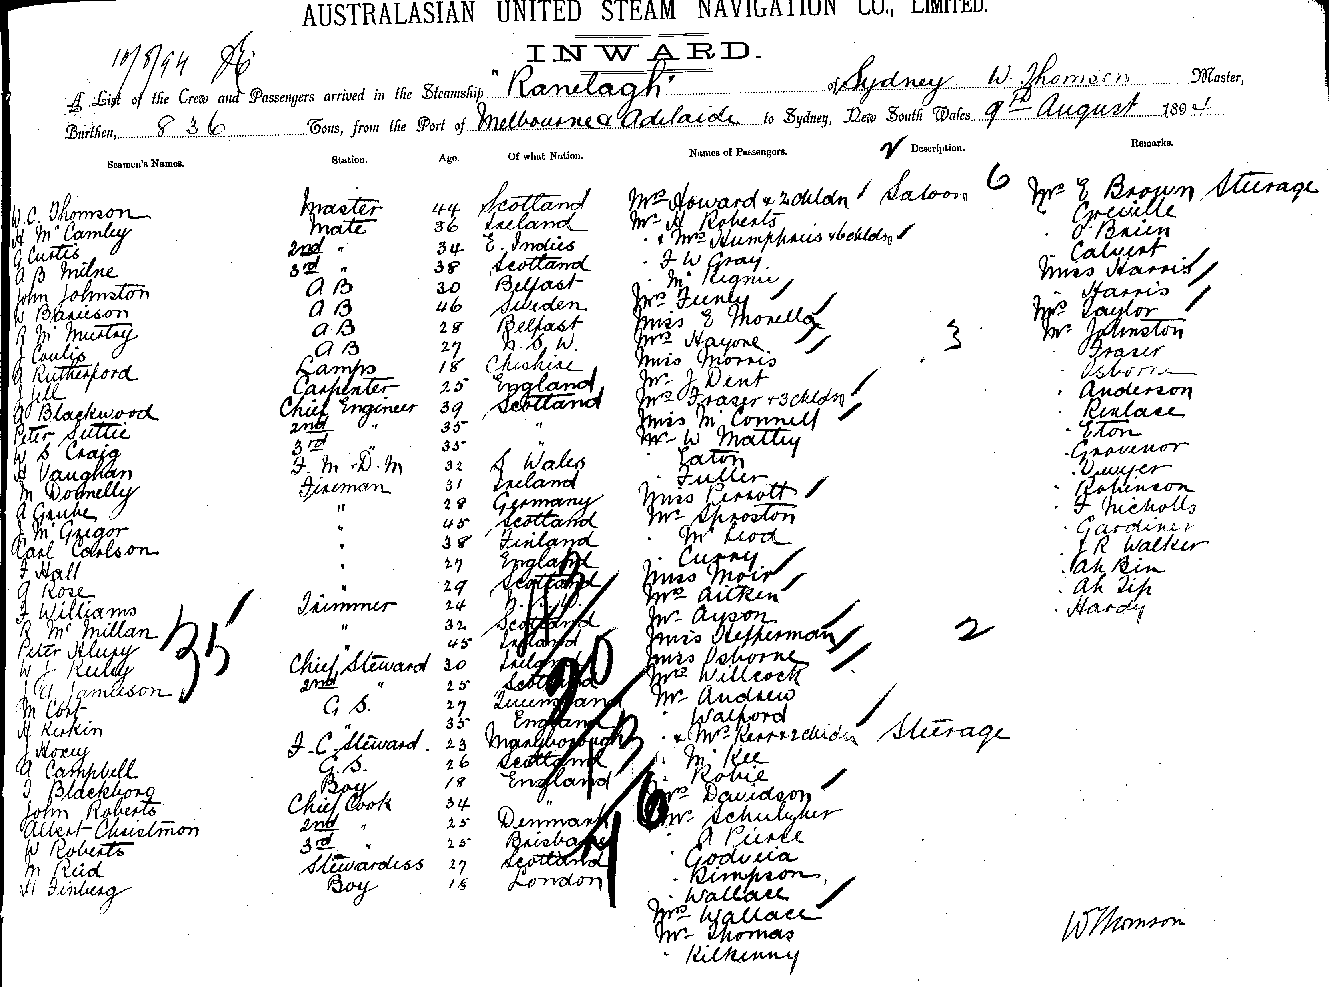 AUSTRALASIAN UNITED STEAM NAVIGATION CO., LIMITED.
INWARD.
10/8/94
A List of the Crew and Passengers arrived in the Steamship "Ranelagh" of Sydney W. Thomson Master,
Burthen, 836 Tons, from the Port of Melbourne & Adelaide to Sydney, New South Wales 9th August 1894
Seamen's Names. Station. Age. Of what Nation. Names of Passengers. Description. Remarks.
W. C. Thomson Master 44 Scotland
H McCamley Mate 36 Ireland
G Curtis 2nd " 34 E. Indies
A B Milne 3rd " 38 Scotland
John Johnston A B 30 Belfast
W Banieson A B 46 Sweden
R McMurtry A B 28 Belfast
J Coulis A B 27 N. S. W.
A Rutherford Lamps 18 Cheshire
J Jell Carpenter 25 England
A Blackwood Chief Engineer 39 Scotland
Peter Suttie 2nd " 35 "
W S Craig 3rd " 35
H Vaughan F. M. D. M 32 S Wales
M Donnelly Fireman 31 Ireland
A Grube " 28 Germany
J McGregor " 45 Scotland
Carl Carlson " 38 Finland
F Hall " 27 England
A Rose " 29 Scotland
F Williams Trimmer 24 N. S. W.
R McMillan " 32 Scotland
Peter 45 Ireland
W J Keiley Chief Steward 30 Ireland
J A Jamieson 2nd " 25 Scotland
M Cort G. S. 27 Queensland
H Kerkin " 35 England
J Hoey F. C. Steward. 23 Maryborough
A Campbell G. S. 26 Scotland
J Blackborg Boy 18 England
John Roberts Chief Cook 34 "
Albert Christmon 2nd " 25 Denmark
W Roberts 3rd " 25 Brisbane
M Reid Stewardess 27 Scotland
H Finberg Boy 18 London
35
Mrs Howard & 2 chldn Saloon 6
Mr H Roberts
" & Mrs Humphries & 6 chldn
" F W Gray
" McRignie
Mrs Feenly
Miss E Morella
Mrs Hayone 3
Miss Morris
Mr J Dent
Mrs Fraser & 3 chldn
Miss McConnell
Mr W Mattey
" Eaton
" Fuller
Miss Perrott
Mr Sproston
" McLeod
" Curry
Miss Moir
Mrs Aitken
Mr Ayson
Miss Hefferman
Miss Osborne 2
Mrs Willcock
Mr Andrew
" Walford
" & Mrs Kerr & 2 chldn Steerage
" McKee
" Robie
Mrs Davidson
Mr Schulyher
" A Pierse
" Godveia
" Bimpson
" Wallace
Mrs Wallace
Mr Thomas
" Kilkenny
Mr E Brown Steerage
" Greville
" O'Brien
" Calvert
Miss Harris
" Harris
Mrs Taylor
Mr Johnston
" Fraser
" Osborn
" Anderson
" Renlace
" Eton
" Grovenor
" Dwyer
" Robinson
" F Nicholls
" Gardiner
" J R Walker
" Ah Bin
" Ah Sip
" Hardy
W Thomson